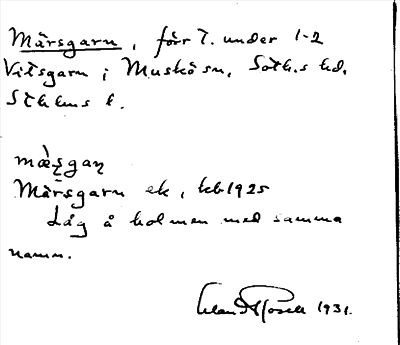 Märsgarn, förr T. under 1-2
Vitsgarn i Muskö sn, Soth.s hd,
Sthlms l.
mæ̀ʂgaɳ
Märsgarn ek, kb 1925
Låg å holmen med samma
namn.
1931.